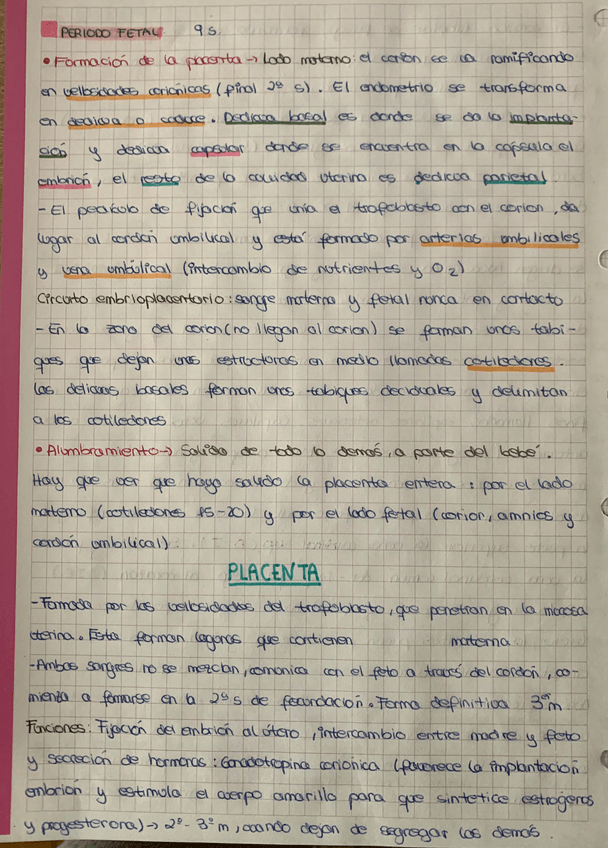 PERIODO FETAL 9s.
• Formación de la placenta → Lado materno: el corion se va ramificando
en vellosidades coriónicas (final 2ª s). El endometrio se transforma
en decidua o caduca. Decidua basal es donde se da la implanta-
ción y decidua capsular donde se encuentra en la cápsula el
embrión, el resto de la cavidad uterina es decidua parietal
- El pedículo de fijación que unía el trofoblasto con el corion, da
lugar al cordón umbilical y está formado por arterias umbilicales
y vena umbilical (intercambio de nutrientes y O₂)
Circuito embrioplacentario: sangre materna y fetal nunca en contacto
- En la zona del corion (no llegan al corion) se forman unos tabi-
ques que dejan unas estructuras en medio llamadas cotiledones.
Las deciduas basales forman unos tabiques deciduales y delimitan
a los cotiledones
• Alumbramiento → Salida de todo lo demás, a parte del bebé.
Hay que ver que haya salido la placenta entera: por el lado
materno (cotiledones 15-20) y por el lado fetal (corion, amnios y
cordón umbilical).
PLACENTA
- Formada por las vellosidades del trofoblasto, que penetran en la mucosa
uterina. Esta forman lagunas que contienen materna.
- Ambas sangres no se mezclan, comunica con el feto a través del cordón, co-
mienza a formarse en la 2ª s de fecundación. Forma definitiva 3º m
Funciones: Fijación del embrión al útero, intercambio entre madre y feto
y secreción de hormonas: Gonadotropina coriónica (favorece la implantación
embrión y estimula el cuerpo amarillo para que sintetice estrógenos
y progesterona) → 2º - 3º m, cuando dejan de segregar las demás.